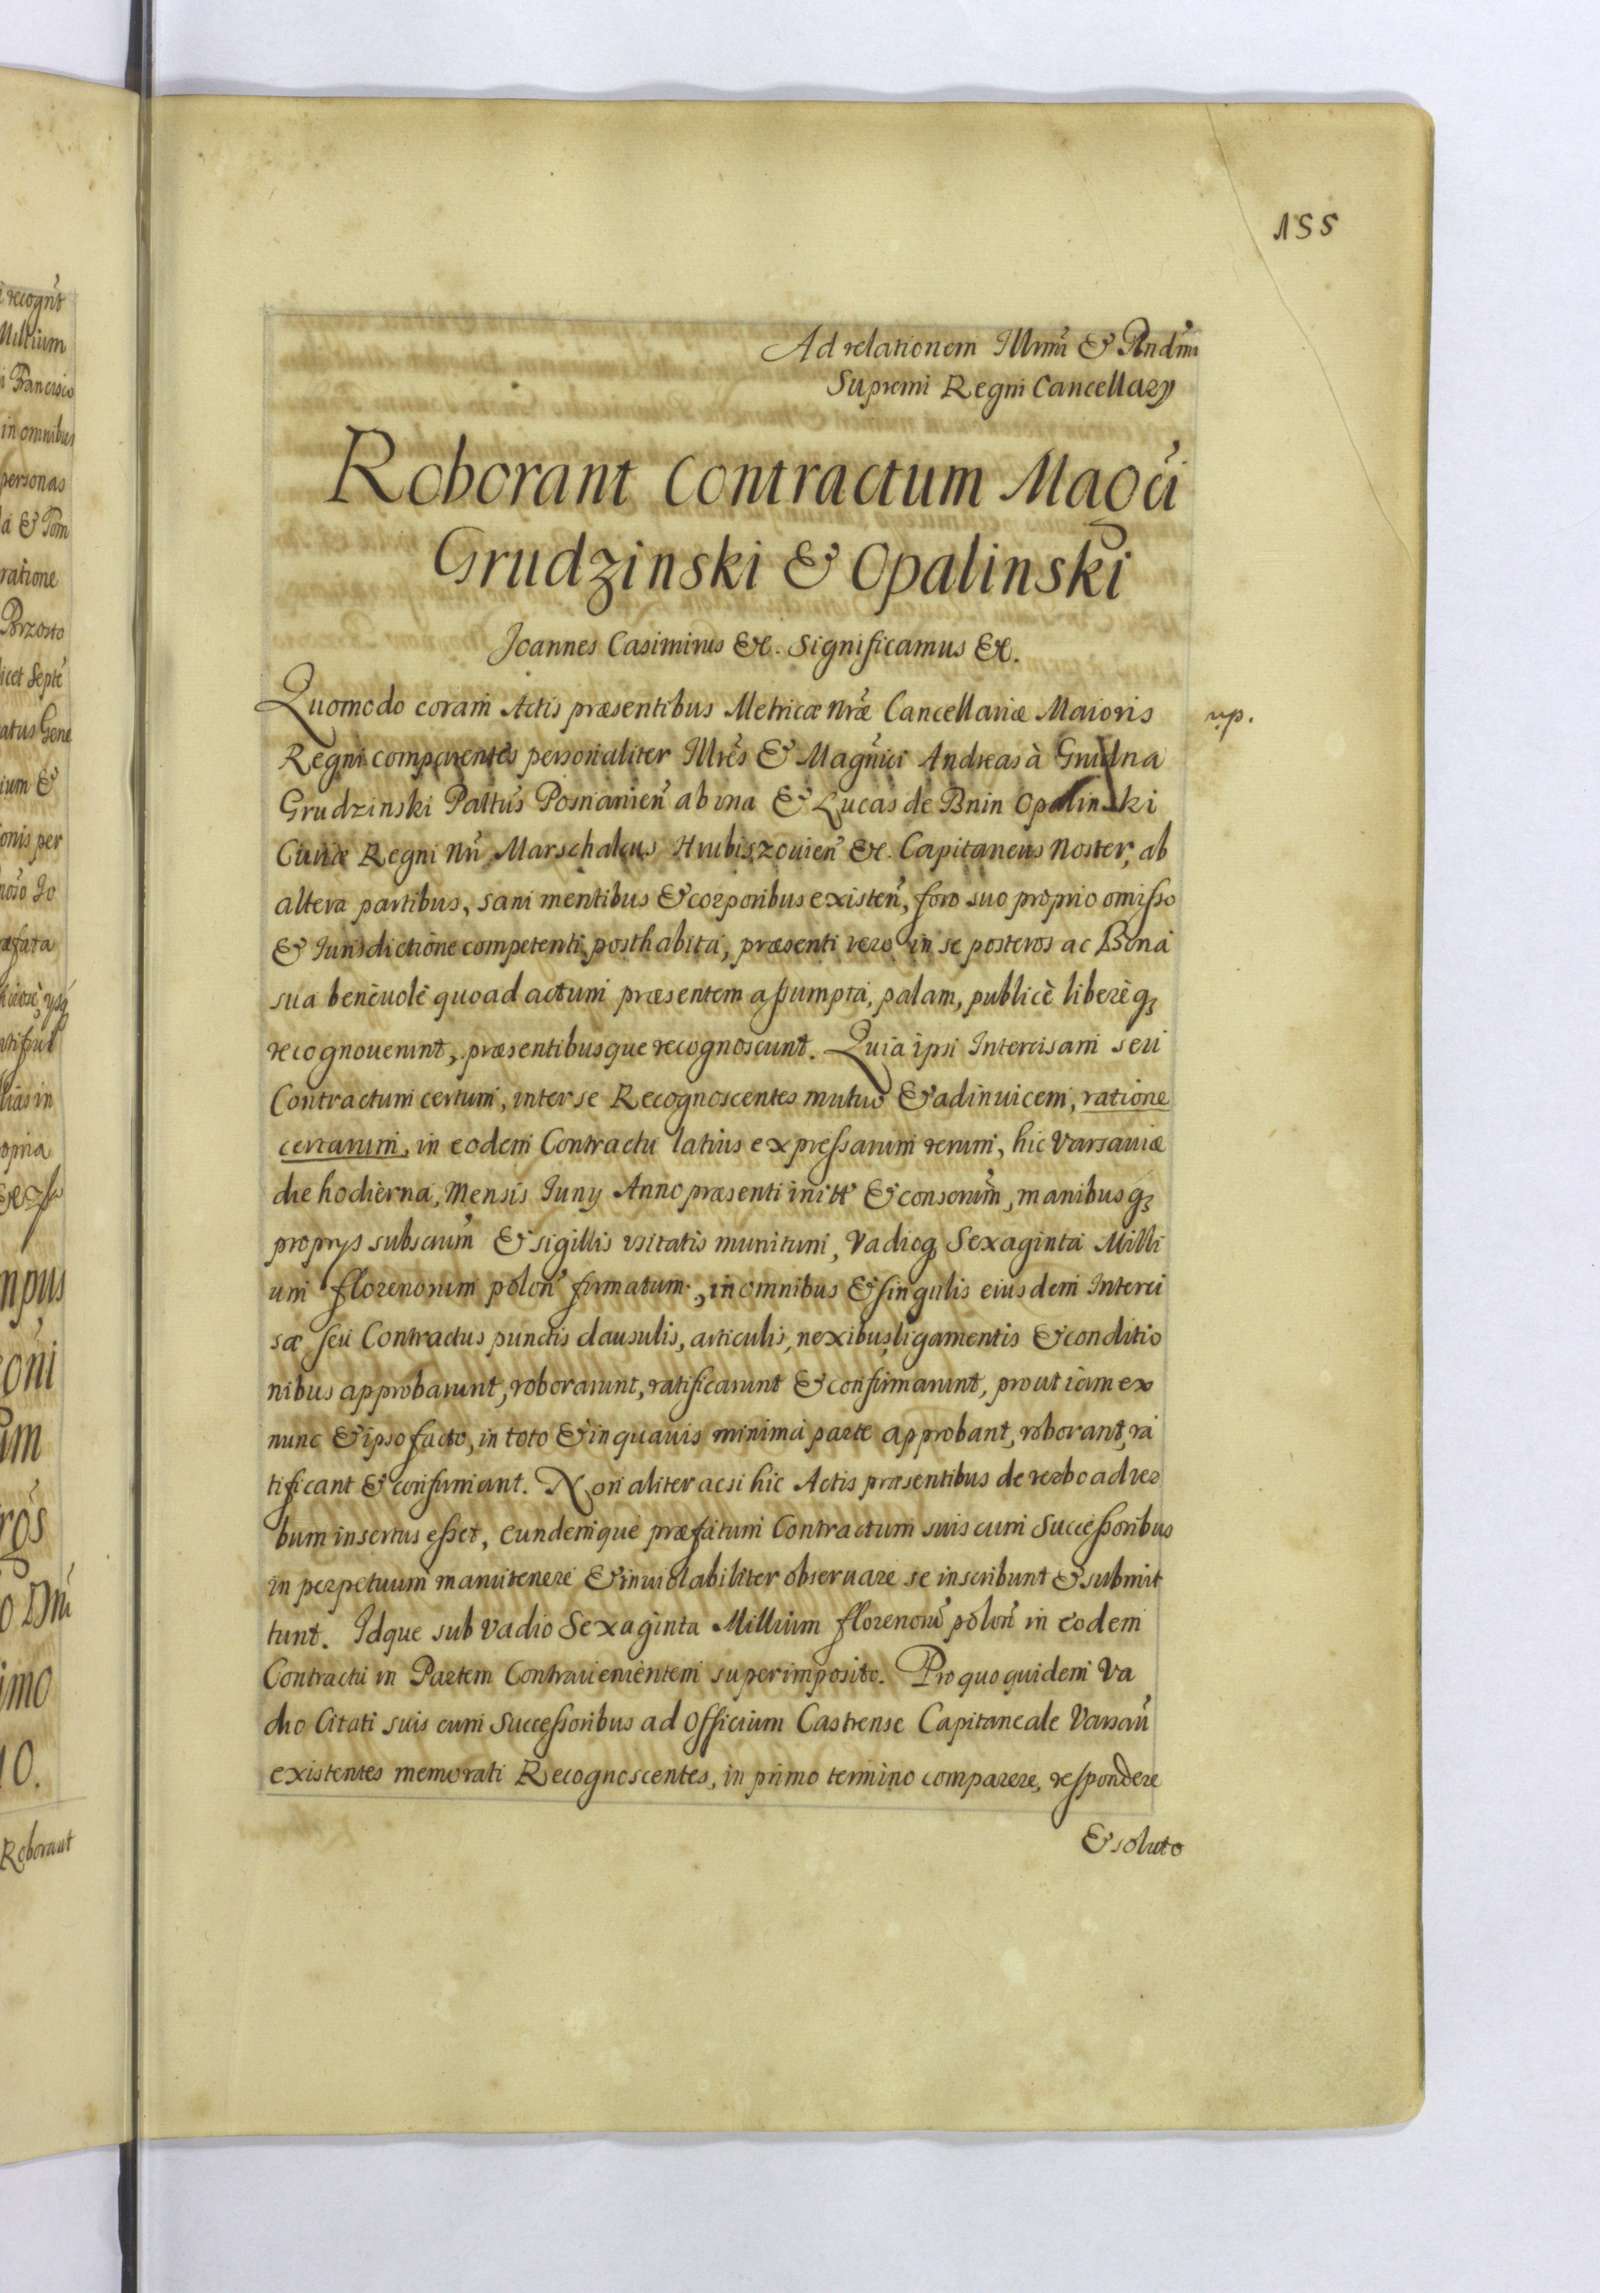 155
Ad relationem Illrmi & Rndmi
Supremi Regni Cancellarÿ
Roborant Contractum Magci
Grudzinski & Opalinski
Joannes Casimirus &c. Significamus &c.
Quomodo coram Actis præsentibus Metricæ Nræ Cancellariæ Maioris
np.
Regni comparentes personaliter Illres & Magnici Andreas à Grudna
Grudzinski Paltus Posnanien ab una & Lucas de Bnin Opalinski
Curiæ Regni Nri Marschalcus Hrubiszouien &c. Capitaneus Noster, ab
altera partibus, sani mentibus & corporibus existen, foro suo proprio omisso
& Iurisdictione competenti posthabita, præsenti vero in se posteros ac Bona
sua beneuolè quoad actum præsentem assumpta, palam, publicè liberèq
recognouerunt, præsentibusque recognoscunt. Quia ipsi Intercisam seu
Contractum certum, inter se Recognoscentes mutuo & adinuicem, ratione
certarum, in eodem Contractu latius expressarum rerum, hic Varsauiæ
die hodierna, Mensis Iuny Anno præsenti initt & conscrium, manibusq
proprÿs subscrium & sigillis usitatis munitum, Vadioq Sexaginta Milli
um florenorum polon firmatum, in omnibus & singulis eiusdem Interci
sæ seu Contractus punctis clausulis, articulis, nexibus, ligamentis & conditio
nibus approbarunt, roborarunt, ratificarunt & confirmarunt, prout iam ex
nunc & ipso facto, in toto & in quauis minima parte approbant, roborant, ra
tificant & confirmant. Non aliter acsi hic Actis præsentibus de verbo ad ver
bum insertus esset, eundemque præfatum Contractum suis cum Successoribus
in perpetuum manutenere & inuiolabiliter obseruare se inscribunt & submit
tunt. Idque sub vadio Sexaginta Millium florenoru polon in eodem
Contractu in Partem Contrauenientem superimposito. Pro quo quidem Va
dio Citati suis cum Successoribus ad Officium Castrense Capitaneale Varsau
existentes memorati Recognoscentes, in primo termino comparere, respondere
& soluto